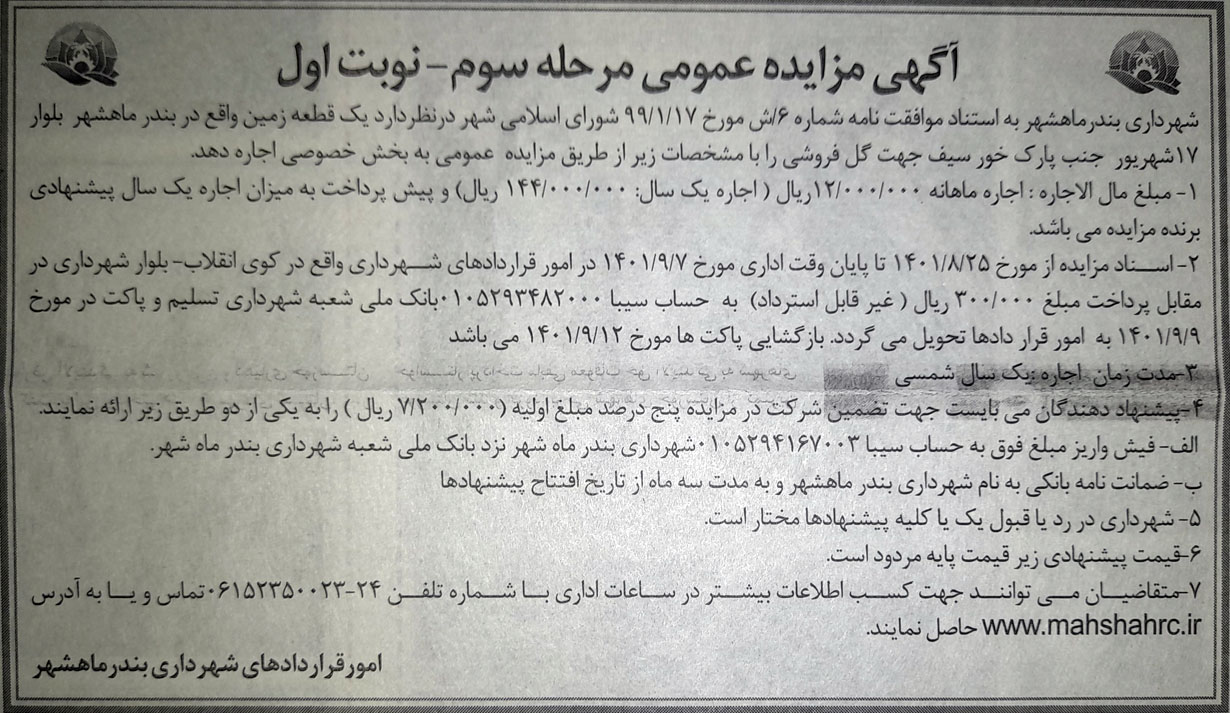 آگهی مزایده عمومی مرحله سوم - نوبت اول
شهرداری بندرماهشهر به استناد موافقت نامه شماره ۶/ش مورخ ۹۹/۱/۱۷ شورای اسلامی شهر درنظردارد یک قطعه زمین واقع در بندر ماهشهر بلوار
۱۷شهریور جنب پارک خور سیف جهت گل فروشی را با مشخصات زیر از طریق مزایده عمومی به بخش خصوصی اجاره دهد.
۱- مبلغ مال الاجاره : اجاره ماهانه ۱۲/۰۰۰/۰۰۰ریال ( اجاره یک سال: ۱۴۴/۰۰۰/۰۰۰ ریال) و پیش پرداخت به میزان اجاره یک سال پیشنهادی
برنده مزایده می باشد.
۲- اسناد مزایده از مورخ ۱۴۰۱/۸/۲۵ تا پایان وقت اداری مورخ ۱۴۰۱/۹/۷ در امور قراردادهای شهرداری واقع در کوی انقلاب- بلوار شهرداری در
مقابل پرداخت مبلغ ۳۰۰/۰۰۰ ریال ( غیر قابل استرداد) به حساب سیبا ۰۱۰۵۲۹۳۴۸۲۰۰۰بانک ملی شعبه شهرداری تسلیم و پاکت در مورخ
۱۴۰۱/۹/۹ به امور قرار دادها تحویل می گردد. بازگشایی پاکت ها مورخ ۱۴۰۱/۹/۱۲ می باشد
۳-مدت زمان اجاره :یک سال شمسی
۴-پیشنهاد دهندگان می بایست جهت تضمین شرکت در مزایده پنج درصد مبلغ اولیه (۷/۲۰۰/۰۰۰ ریال ) را به یکی از دو طریق زیر ارائه نمایند.
الف- فیش واریز مبلغ فوق به حساب سیبا ۰۱۰۵۲۹۴۱۶۷۰۰۳شهرداری بندر ماه شهر نزد بانک ملی شعبه شهرداری بندر ماه شهر.
ب- ضمانت نامه بانکی به نام شهرداری بندر ماهشهر و به مدت سه ماه از تاریخ افتتاح پیشنهادها
۵- شهرداری در رد یا قبول یک یا کلیه پیشنهادها مختار است.
۶-قیمت پیشنهادی زیر قیمت پایه مردود است.
۷-متقاضیان می توانند جهت کسب اطلاعات بیشتر در ساعات اداری با شماره تلفن ۲۴-۰۶۱۵۲۳۵۰۰۲۳تماس و یا به آدرس
www.mahshahrc.ir حاصل نمایند.
امور قراردادهای شهرداری بندرماهشهر